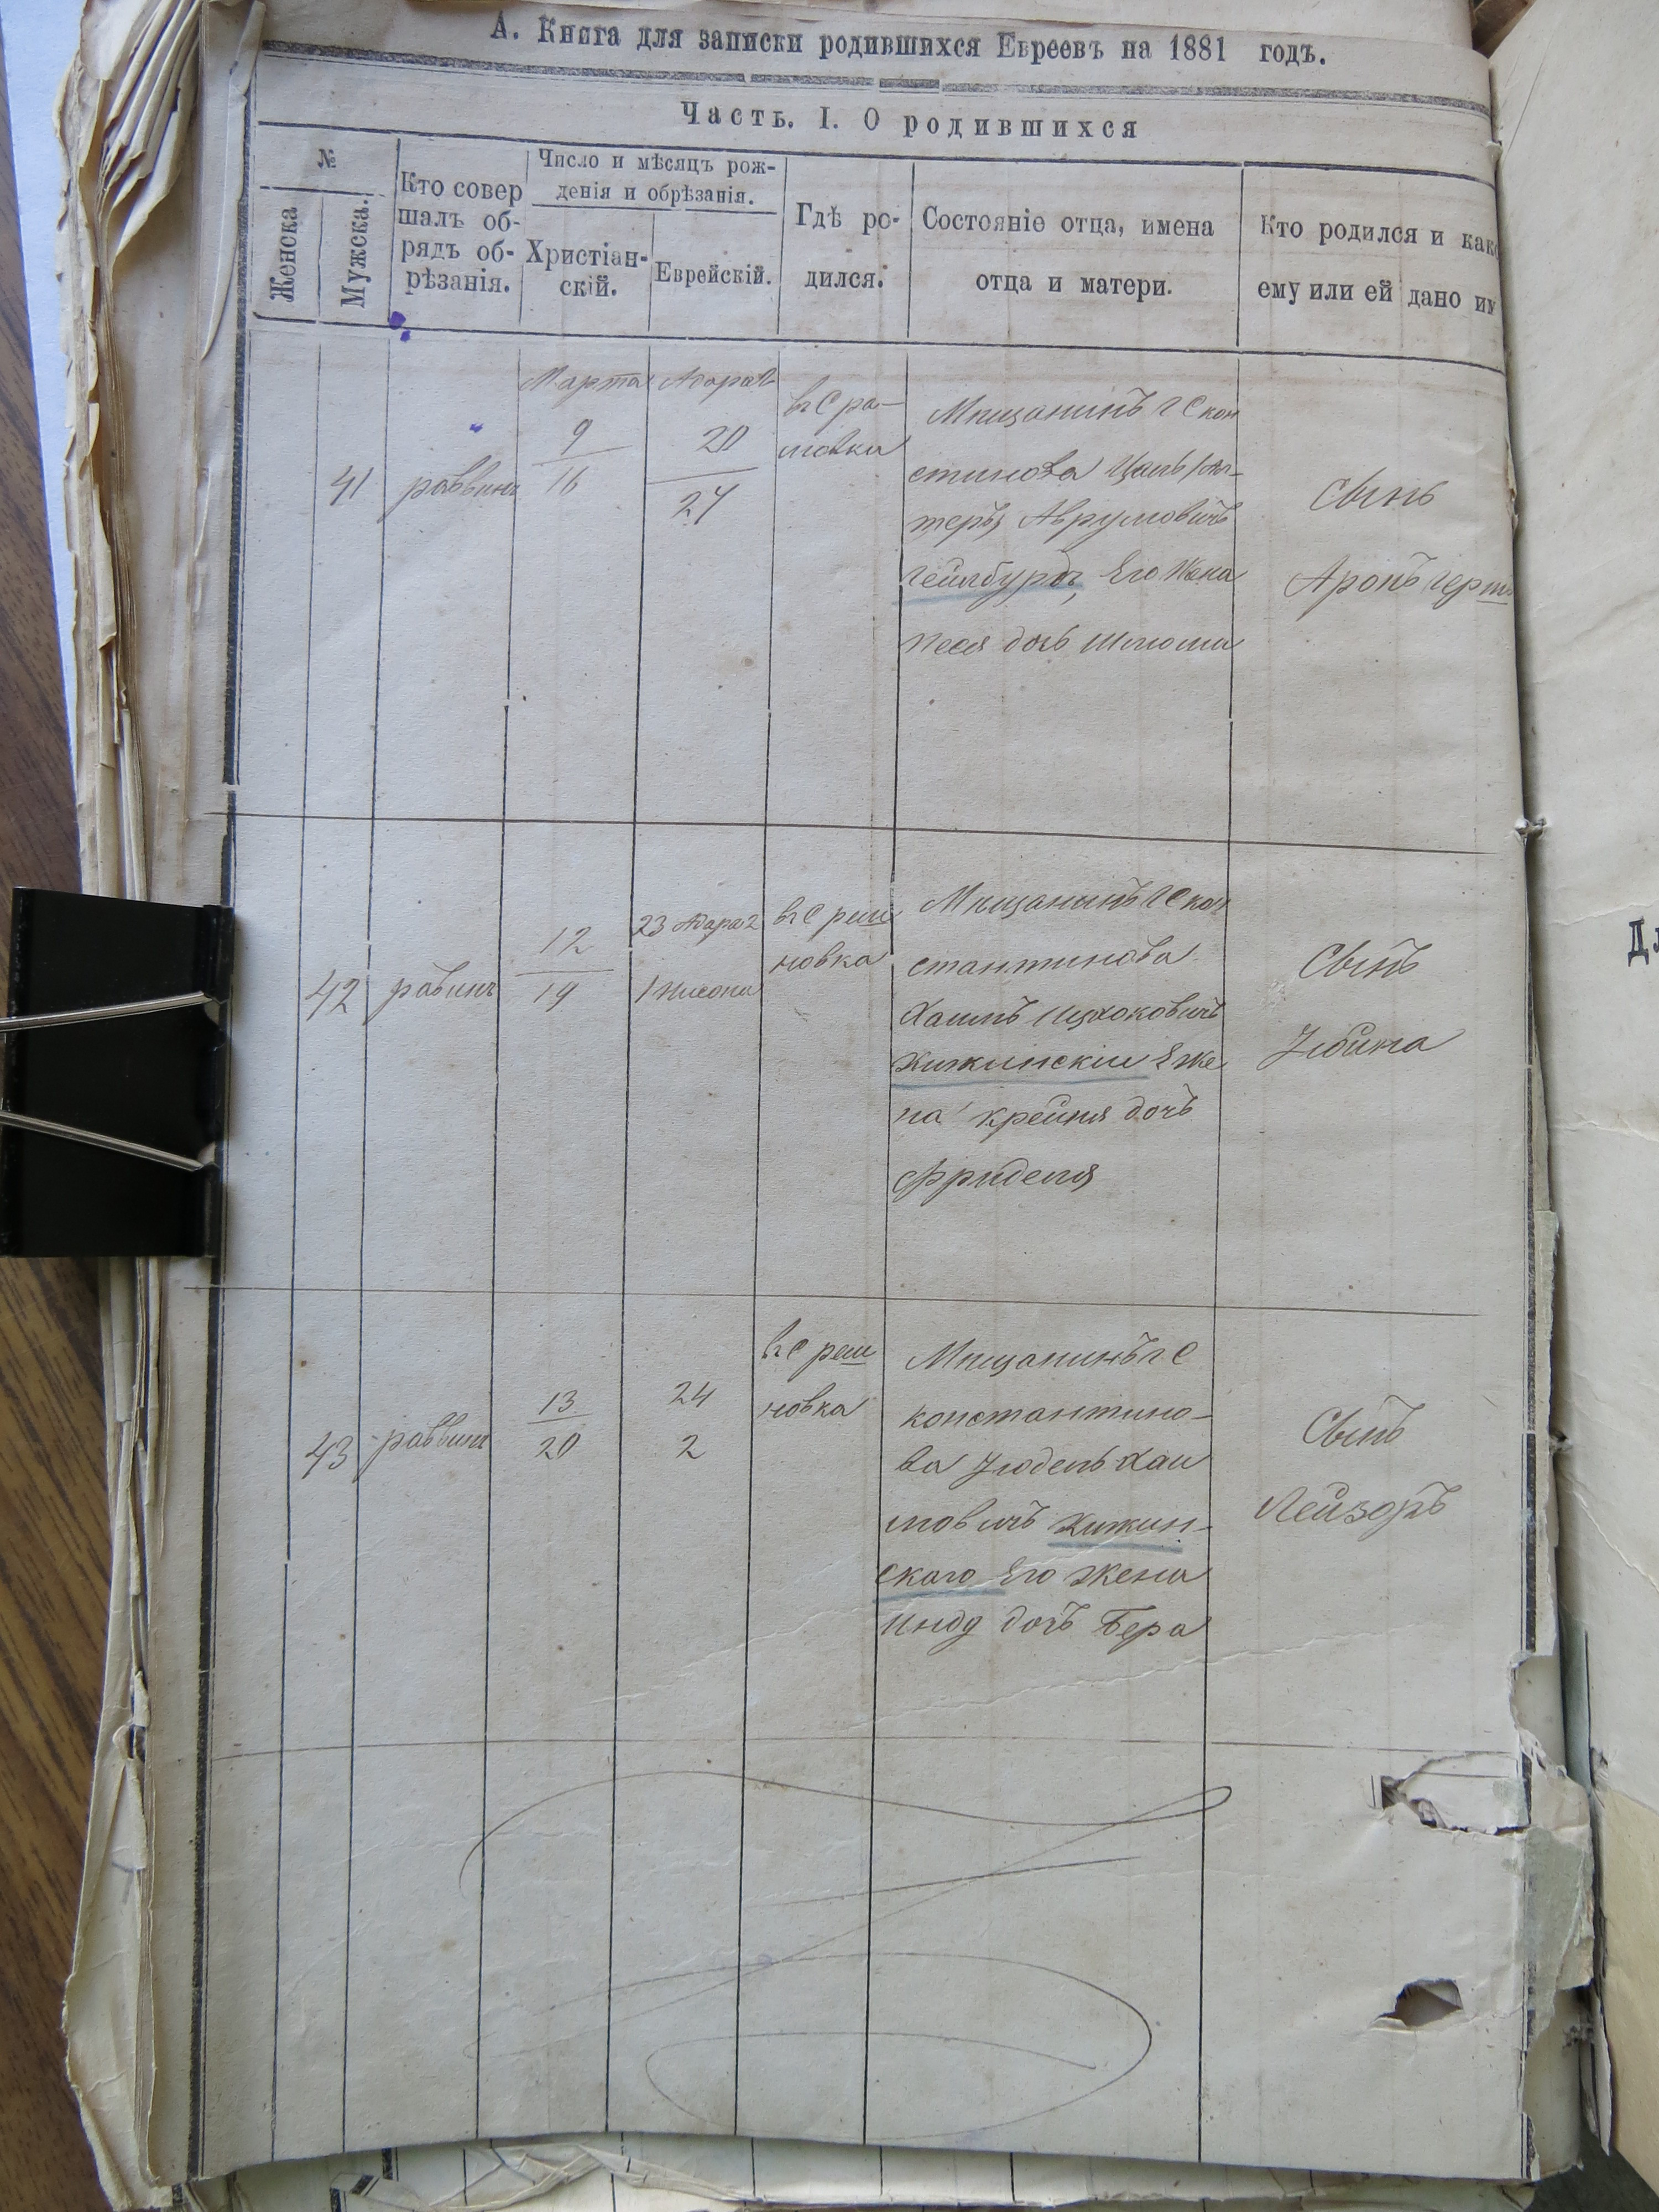 А. Книга для записки родившихся Евреевъ на 1881 годъ.
Часть. I. О родившихся
№
Женска
Мужска.
Кто совер
шалъ об-
рядъ об-
рѣзанія.
Число и мѣсяцъ рож-
денія и обрѣзанія.
Христіан-
скій.
Еврейскій.
Гдѣ ро-
дился.
Состояніе отца, имена
отца и матери.
Кто родился и како
ему или ей дано им
41
раввинъ
Марта
9
16
Адара
20
27
Мищанинъ г С кон
стинова
Аврумовичъ
Гейлбурдъ, Его Жена
Песя дочь Шлома
Сынъ
Аронъ Герш
42
равинъ
12
19
23 Адара 2
1 Нисона
въ С реш
новка
Мищанинъ г С кон
стантинова
Хаимъ Ицхоковичъ
Кижинскіи Е же
на Крейня дочь
Фриделя
Сынъ
43
раввинъ
13
20
24
2
въ С реш
новка
Мищанинъ г С
константино-
ва Юдель Хаи
мовичъ Кижин-
скаго Его Жена
дочъ Бера
Сынъ
Лейзоръ